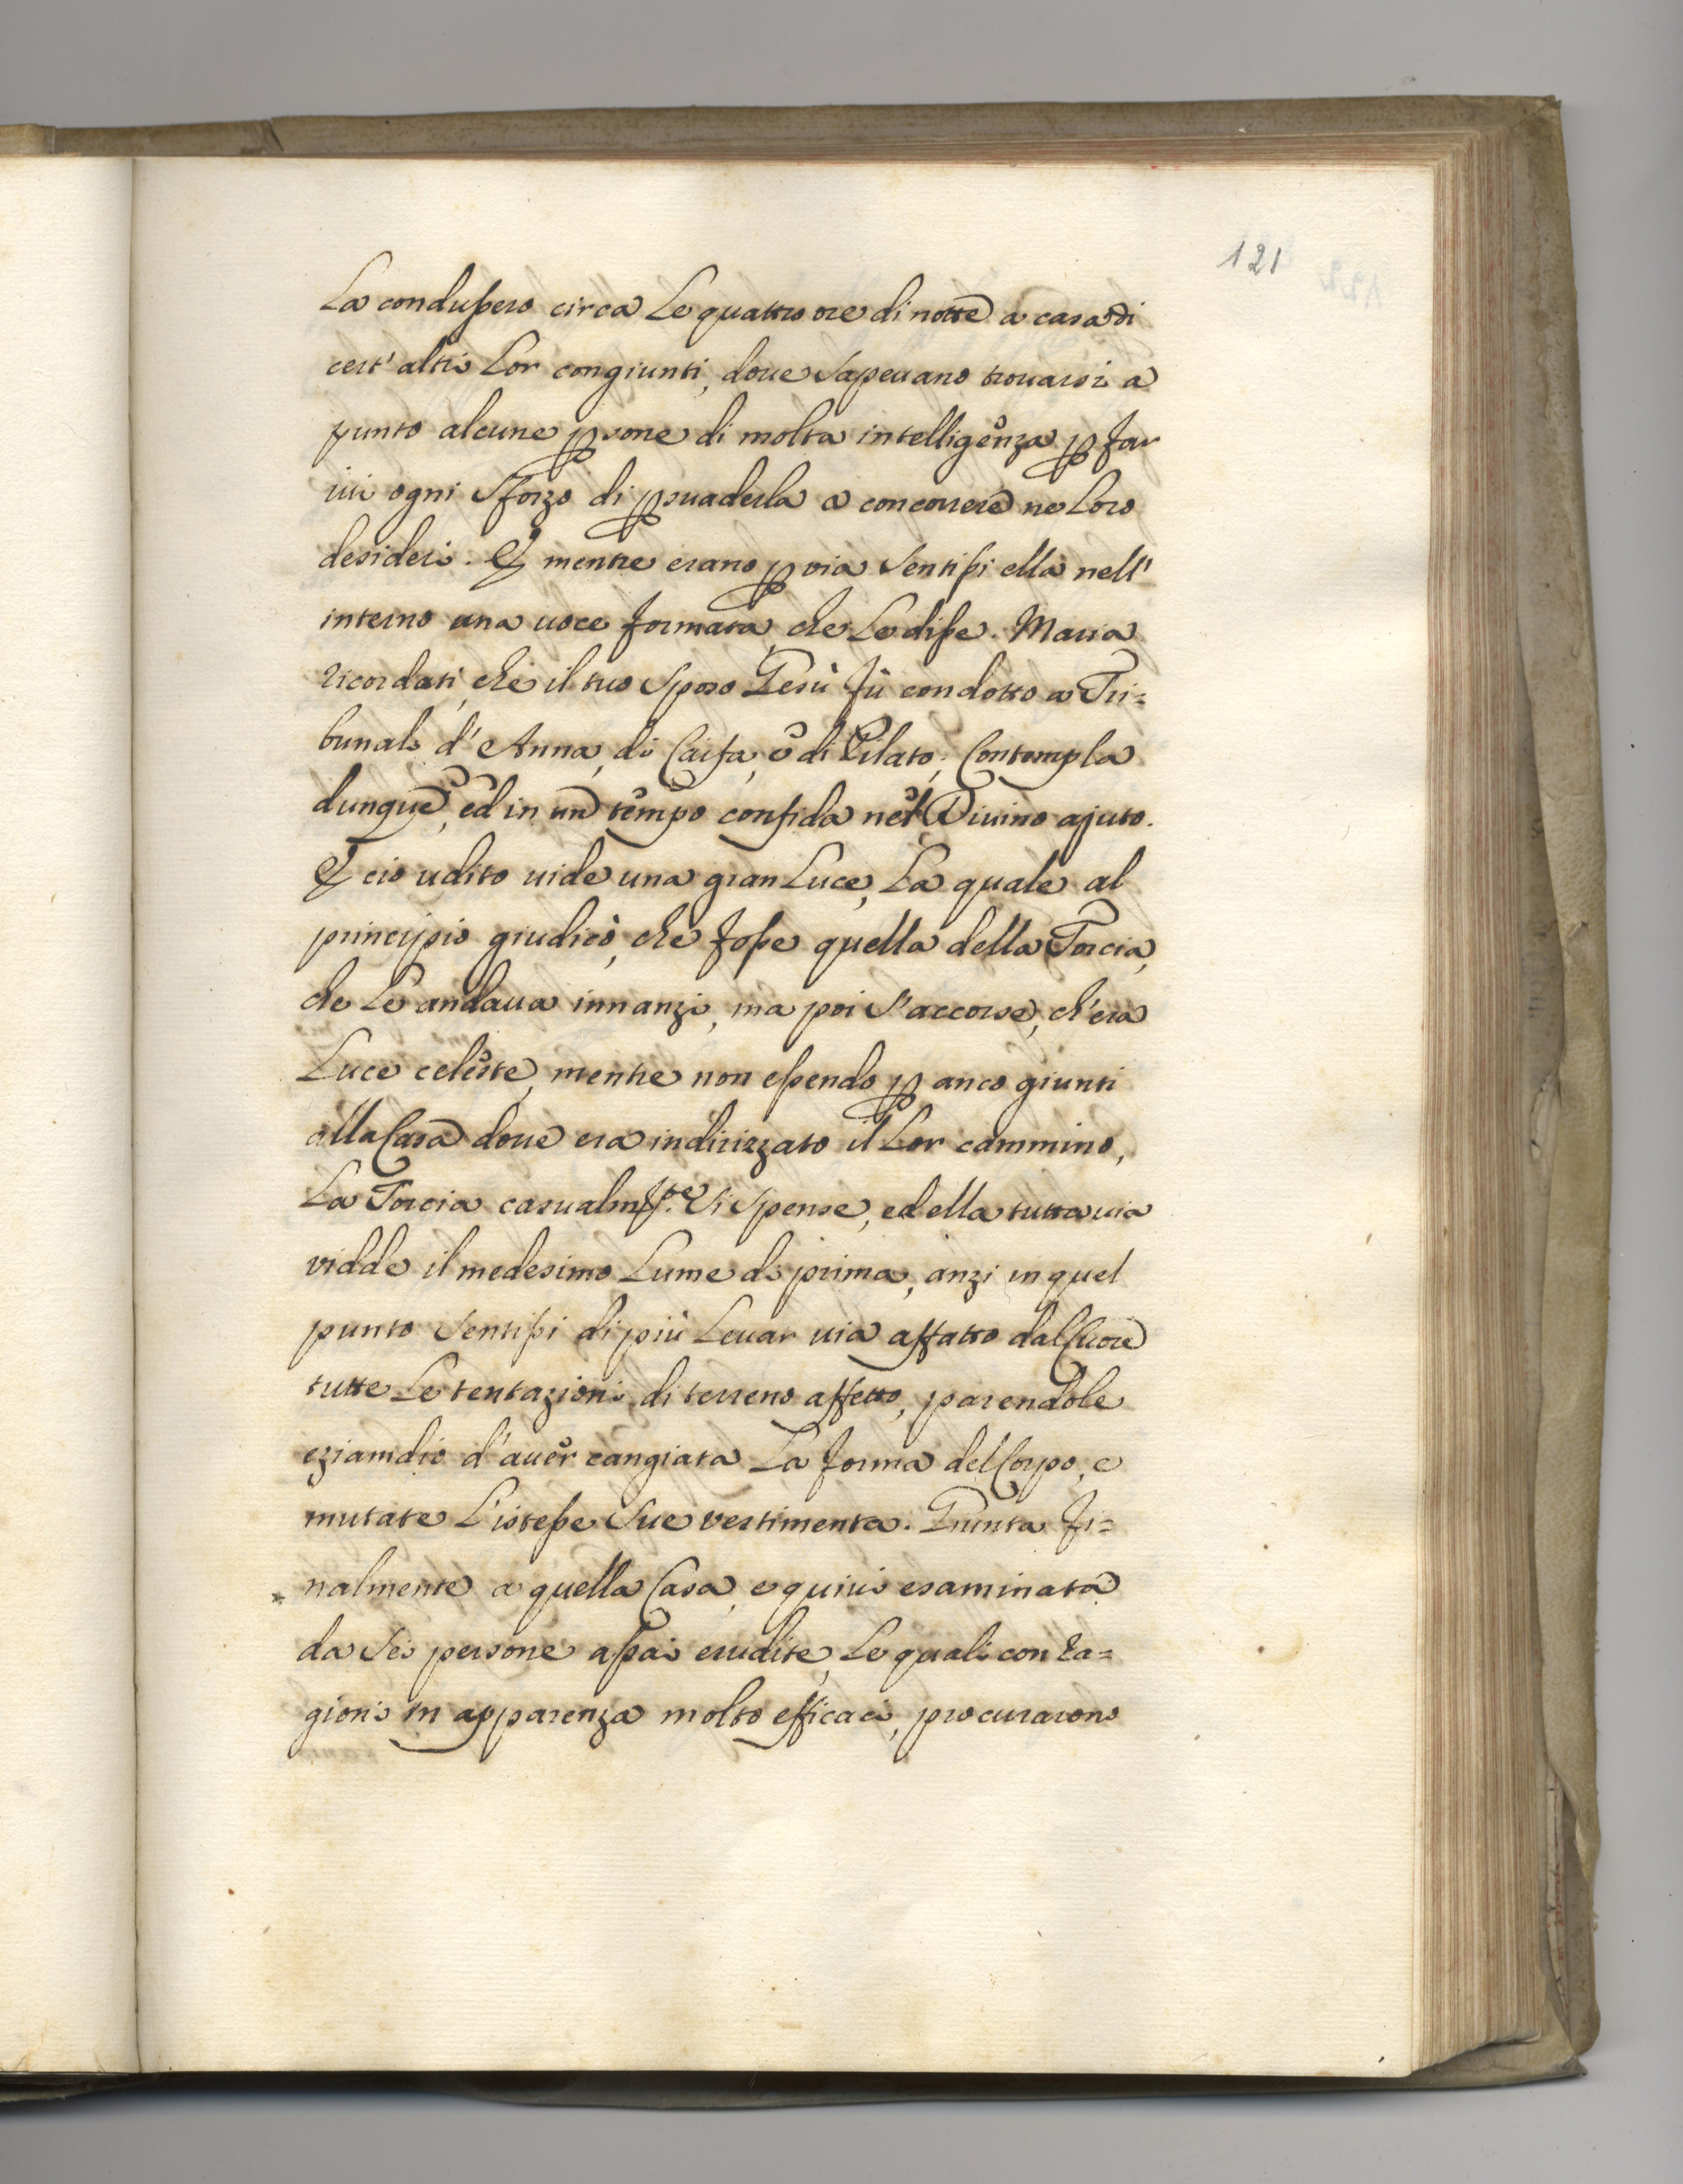 121
La condussero circa Le quattro ore di notte a casa di
cert' altri Lor congiunti, doue Sapeuano trouarsi a
punto alcune ꝑsone di molta intelligenza ꝑ far
iui ogni Sforzo di ꝑsuaderla a concorrere ne Loro
desideri. E mentre erano ꝑ via Sentissi ella nell'
interno una uoce formata, che Le disse. Maria
ricordati, che il tuo Sposo Gesù fù condotto a Tri=
bunali d'Anna, di Caifa, ò di Pilato; Contempla
dunque, ed in un tempo confida nel Diuino ajuto.
E ciò udito uide una gran Luce, La quale al
principio giudicò, che fosse quella della Torcia,
che Le andaua innanzi, ma poi S'accorse, ch'era
Luce celeste, mentre non essendo ꝑ anco giunti
alla Casa doue era indirizzato il Lor cammino,
La Torcia casualmte. Si Spense, ed ella tutta uia
vidde il medesimo Lume di prima, anzi in quel
punto Sentissi di più Leuar uia affatto dal Cuore
tutte Le tentazioni di terreno affetto, parendole
eziamdio d'auer cangiata La forma del Corpo, e
mutate L'istesse Sue vestimenta. Giunta fi=
nalmente a quella Casa, e quiui esaminata
da Sei persone assai erudite, Le quali con ra=
gioni in apparenza molto efficaci, procurarono